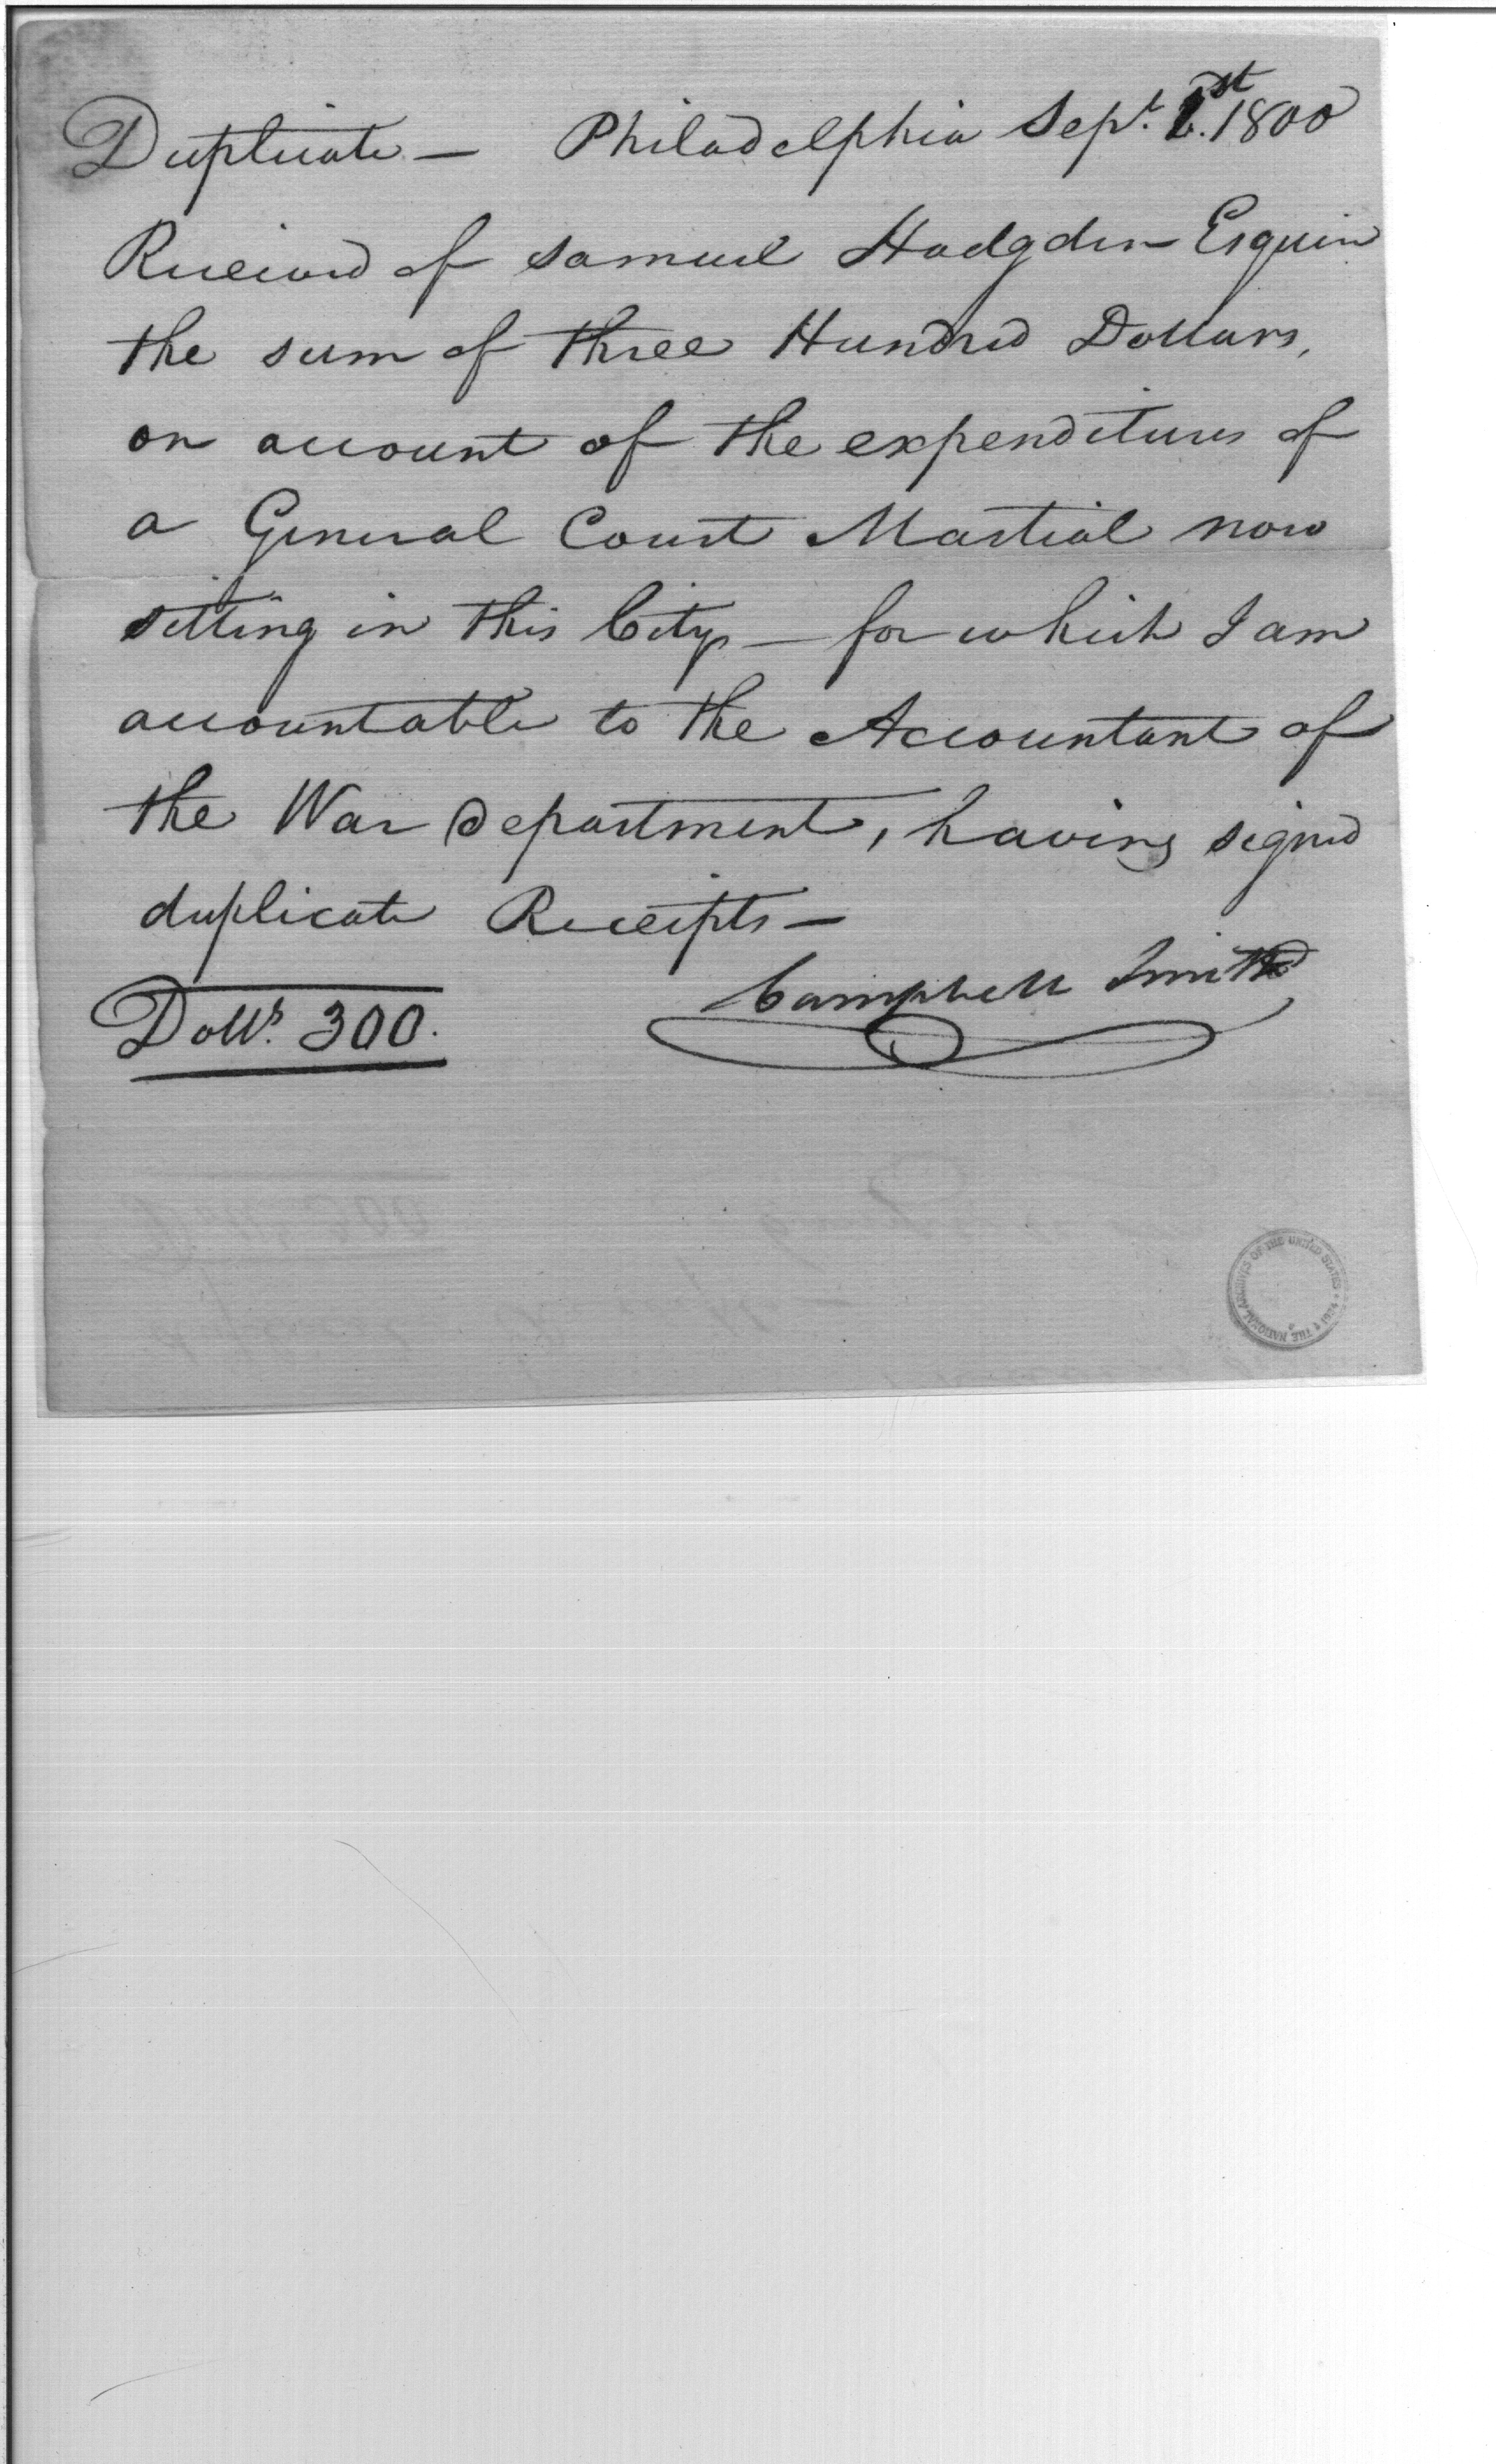 Duplicate — Philadelphia Sept. 1.st 1800
Received of Samuel Hodgdon Esquire
the sum of three Hundred Dollars,
on account of the expenditures of
a General Court Martial now
sitting in this City — for which I am
accountable to the Accountant of
the War department, having signed
duplicate Receipts —
Dolls. 300.
Campbell Smith
THE NATIONAL ARCHIVES OF THE UNITED STATES